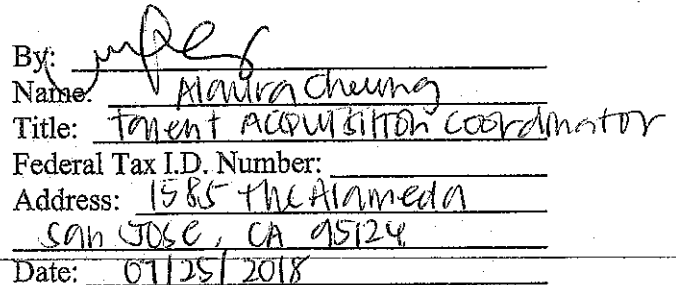 By:
Name: Alaura Cheung
Title: Talent Acquisition Coordinator
Federal Tax I.D. Number:
Address: 1585 The Alameda
San Jose, CA 95124
Date: 07/25/2018